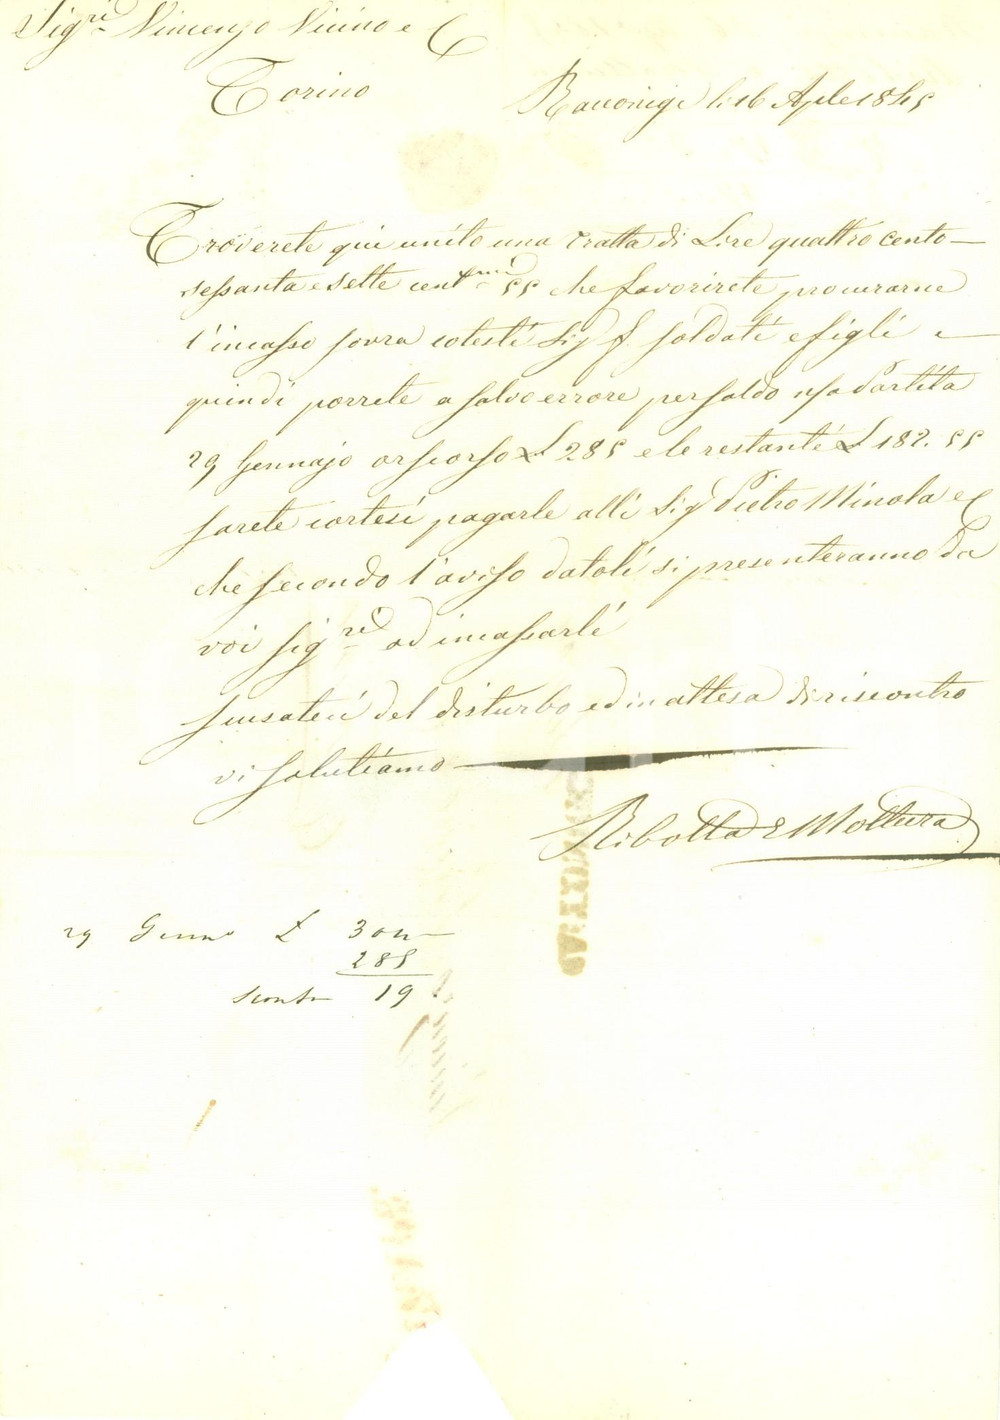 Sig.ri Vincenzo Vicino e C
Torino
Racconigi li 16 Aple 1845
Troverete qui unito una tratta di Lire quattro cento
sessanta e sette cent.mi 55 che favorirete procurarne
l'incasso sovra cotesti Sig f Soldati e figli e
quindi porrete a salvo errore per saldo nsa Partita
29 Gennajo or scorso £ 285 e le restanti £ 182.55
sarete cortesi pagarle alli Sig Pietro Minola e C
che secondo l'aviso datoli si presenteranno da
voi Sig.ri ad incassarle
Scusateci del disturbo ed in attesa di riscontro
vi salutiamo
Ribotta e Mottura
29 Genn.o £ 304
285
sconto 19